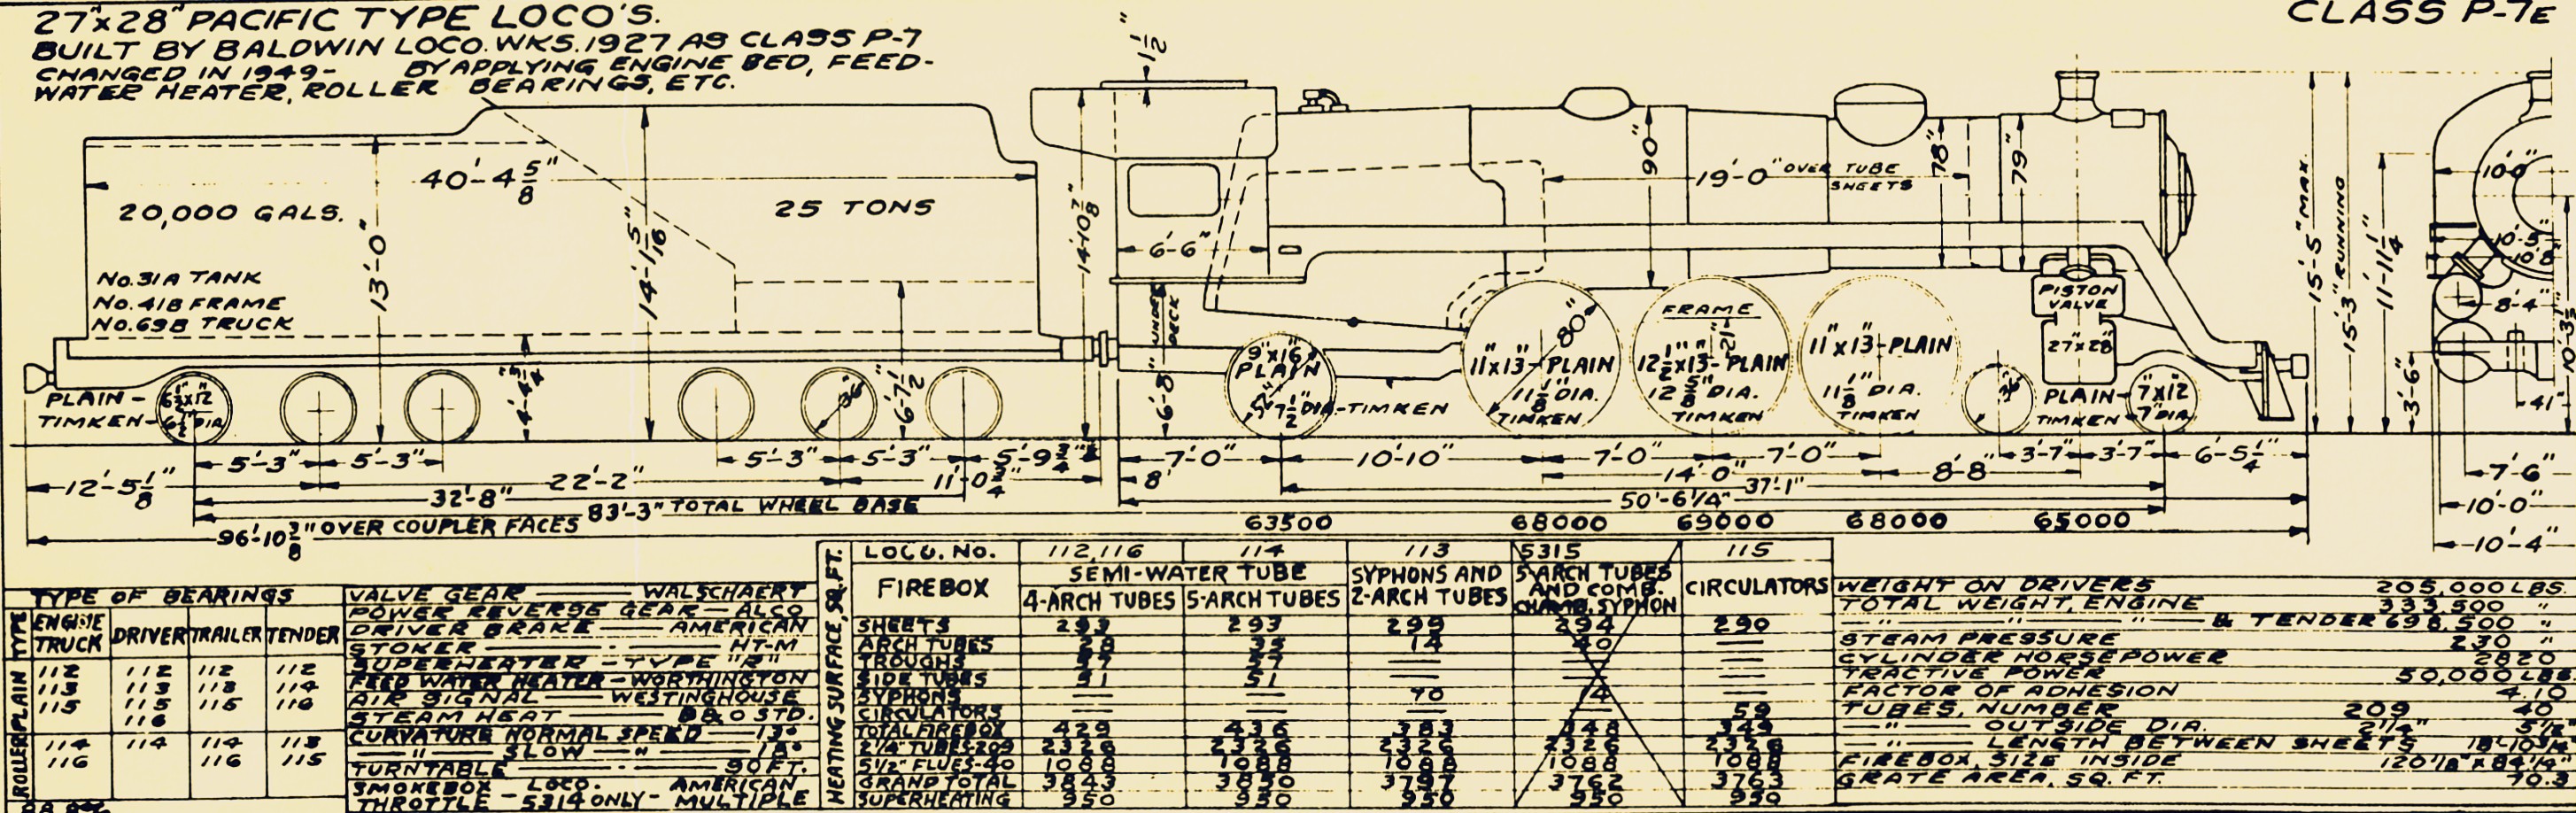 27"x28" PACIFIC TYPE LOCO'S.
BUILT BY BALDWIN LOCO. WKS. 1927 AS CLASS P-7
CHANGED IN 1949- BY APPLYING ENGINE BED, FEED-
WATER HEATER, ROLLER BEARINGS, ETC.
CLASS P-7E
1 1/2"
40'-4 5/8"
20,000 GALS.
25 TONS
13'-0"
14'-1 5/16"
14'-10 7/8"
No. 31A TANK
No. 41B FRAME
No. 69B TRUCK
6'-6"
90"
19'-0" OVER TUBE
SHEETS
78"
79"
15'-5" MAX.
15'-3" RUNNING
11'-11 1/4"
10'-0"
10'-5"
10'-8"
8'-4"
3'-6"
41"
PISTON
VALVE
27"x28"
6'-8" UNDER
DECK
6'-7 1/2"
36"
PLAIN-
TIMKEN-
9"x16"
PLAIN
7 1/2" DIA-TIMKEN
80"
11"x13"-PLAIN
11 1/8" DIA.
TIMKEN
FRAME
12 1/2"x13"-PLAIN
12 5/8" DIA.
TIMKEN
11"x13"-PLAIN
11 1/8" DIA.
TIMKEN
PLAIN-
TIMKEN
7"x12"
7" DIA
5'-3" 5'-3" 5'-3" 5'-3" 5'-9 3/4" 7'-0" 10'-10" 7'-0" 7'-0" 3'-7" 3'-7" 6'-5 1/4"
12'-5 1/8" 22'-2" 11'-0 3/4" 8" 14'-0" 8'-8" 7'-6"
32'-8" 37'-1"
83'-3" TOTAL WHEEL BASE 50'-6 1/4" 10'-0"
96'-10 3/8" OVER COUPLER FACES
63500 68000 69000 68000 65000
10'-4"
TYPE OF BEARINGS
TYPE ENGINE TRUCK DRIVER TRAILER TENDER
PLAIN
112 112 112 112
113 113 113 114
115 115 115 116
116
ROLLER
114 114 114 113
116 116 115
VALVE GEAR — WALSCHAERT
POWER REVERSE GEAR — ALCO
DRIVER BRAKE — AMERICAN
STOKER — HT-M
SUPERHEATER — TYPE "A"
FEED WATER HEATER — WORTHINGTON
AIR SIGNAL — WESTINGHOUSE
STEAM HEAT — B&O STD.
CURVATURE NORMAL SPEED — 13°
— " — SLOW — " —
TURNTABLE — 90 FT.
SMOKEBOX LOCO. AMERICAN
THROTTLE - 5314 ONLY - MULTIPLE
HEATING SURFACE, SQ. FT.
LOCO. NO. 112,116 114 113 5315 115
FIREBOX
SEMI-WATER TUBE
4-ARCH TUBES 5-ARCH TUBES
SYPHONS AND
2-ARCH TUBES
5-ARCH TUBES
AND COMB.
CHAMB. SYPHON
CIRCULATORS
SHEETS 293 293 299 294 290
ARCH TUBES 28 35 14 40 —
TROUGHS 57 57 — —
SIDE TUBES 51 51 — —
SYPHONS — — 70 14 —
CIRCULATORS — — — 59
TOTAL FIREBOX 429 436 383 348 349
2 1/4" TUBES-209 2326 2326 2326 2326 2326
5 1/2" FLUES-40 1088 1088 1088 1088 1088
GRAND TOTAL 3843 3850 3797 3762 3763
SUPERHEATING 950 950 950 950 950
WEIGHT ON DRIVERS 205,000 LBS.
TOTAL WEIGHT, ENGINE 333,500 "
— " — " — " — & TENDER 698,500 "
STEAM PRESSURE 230 "
CYLINDER HORSEPOWER 2820
TRACTIVE POWER 50,000 LBS
FACTOR OF ADHESION 4.10
TUBES, NUMBER 209 40
— " — OUTSIDE DIA. 2 1/4" 5 1/2"
— " — LENGTH BETWEEN SHEETS 18'-10 3/4"
FIREBOX, SIZE INSIDE 120 1/8" x 84 1/4"
GRATE AREA, SQ. FT. 70.3